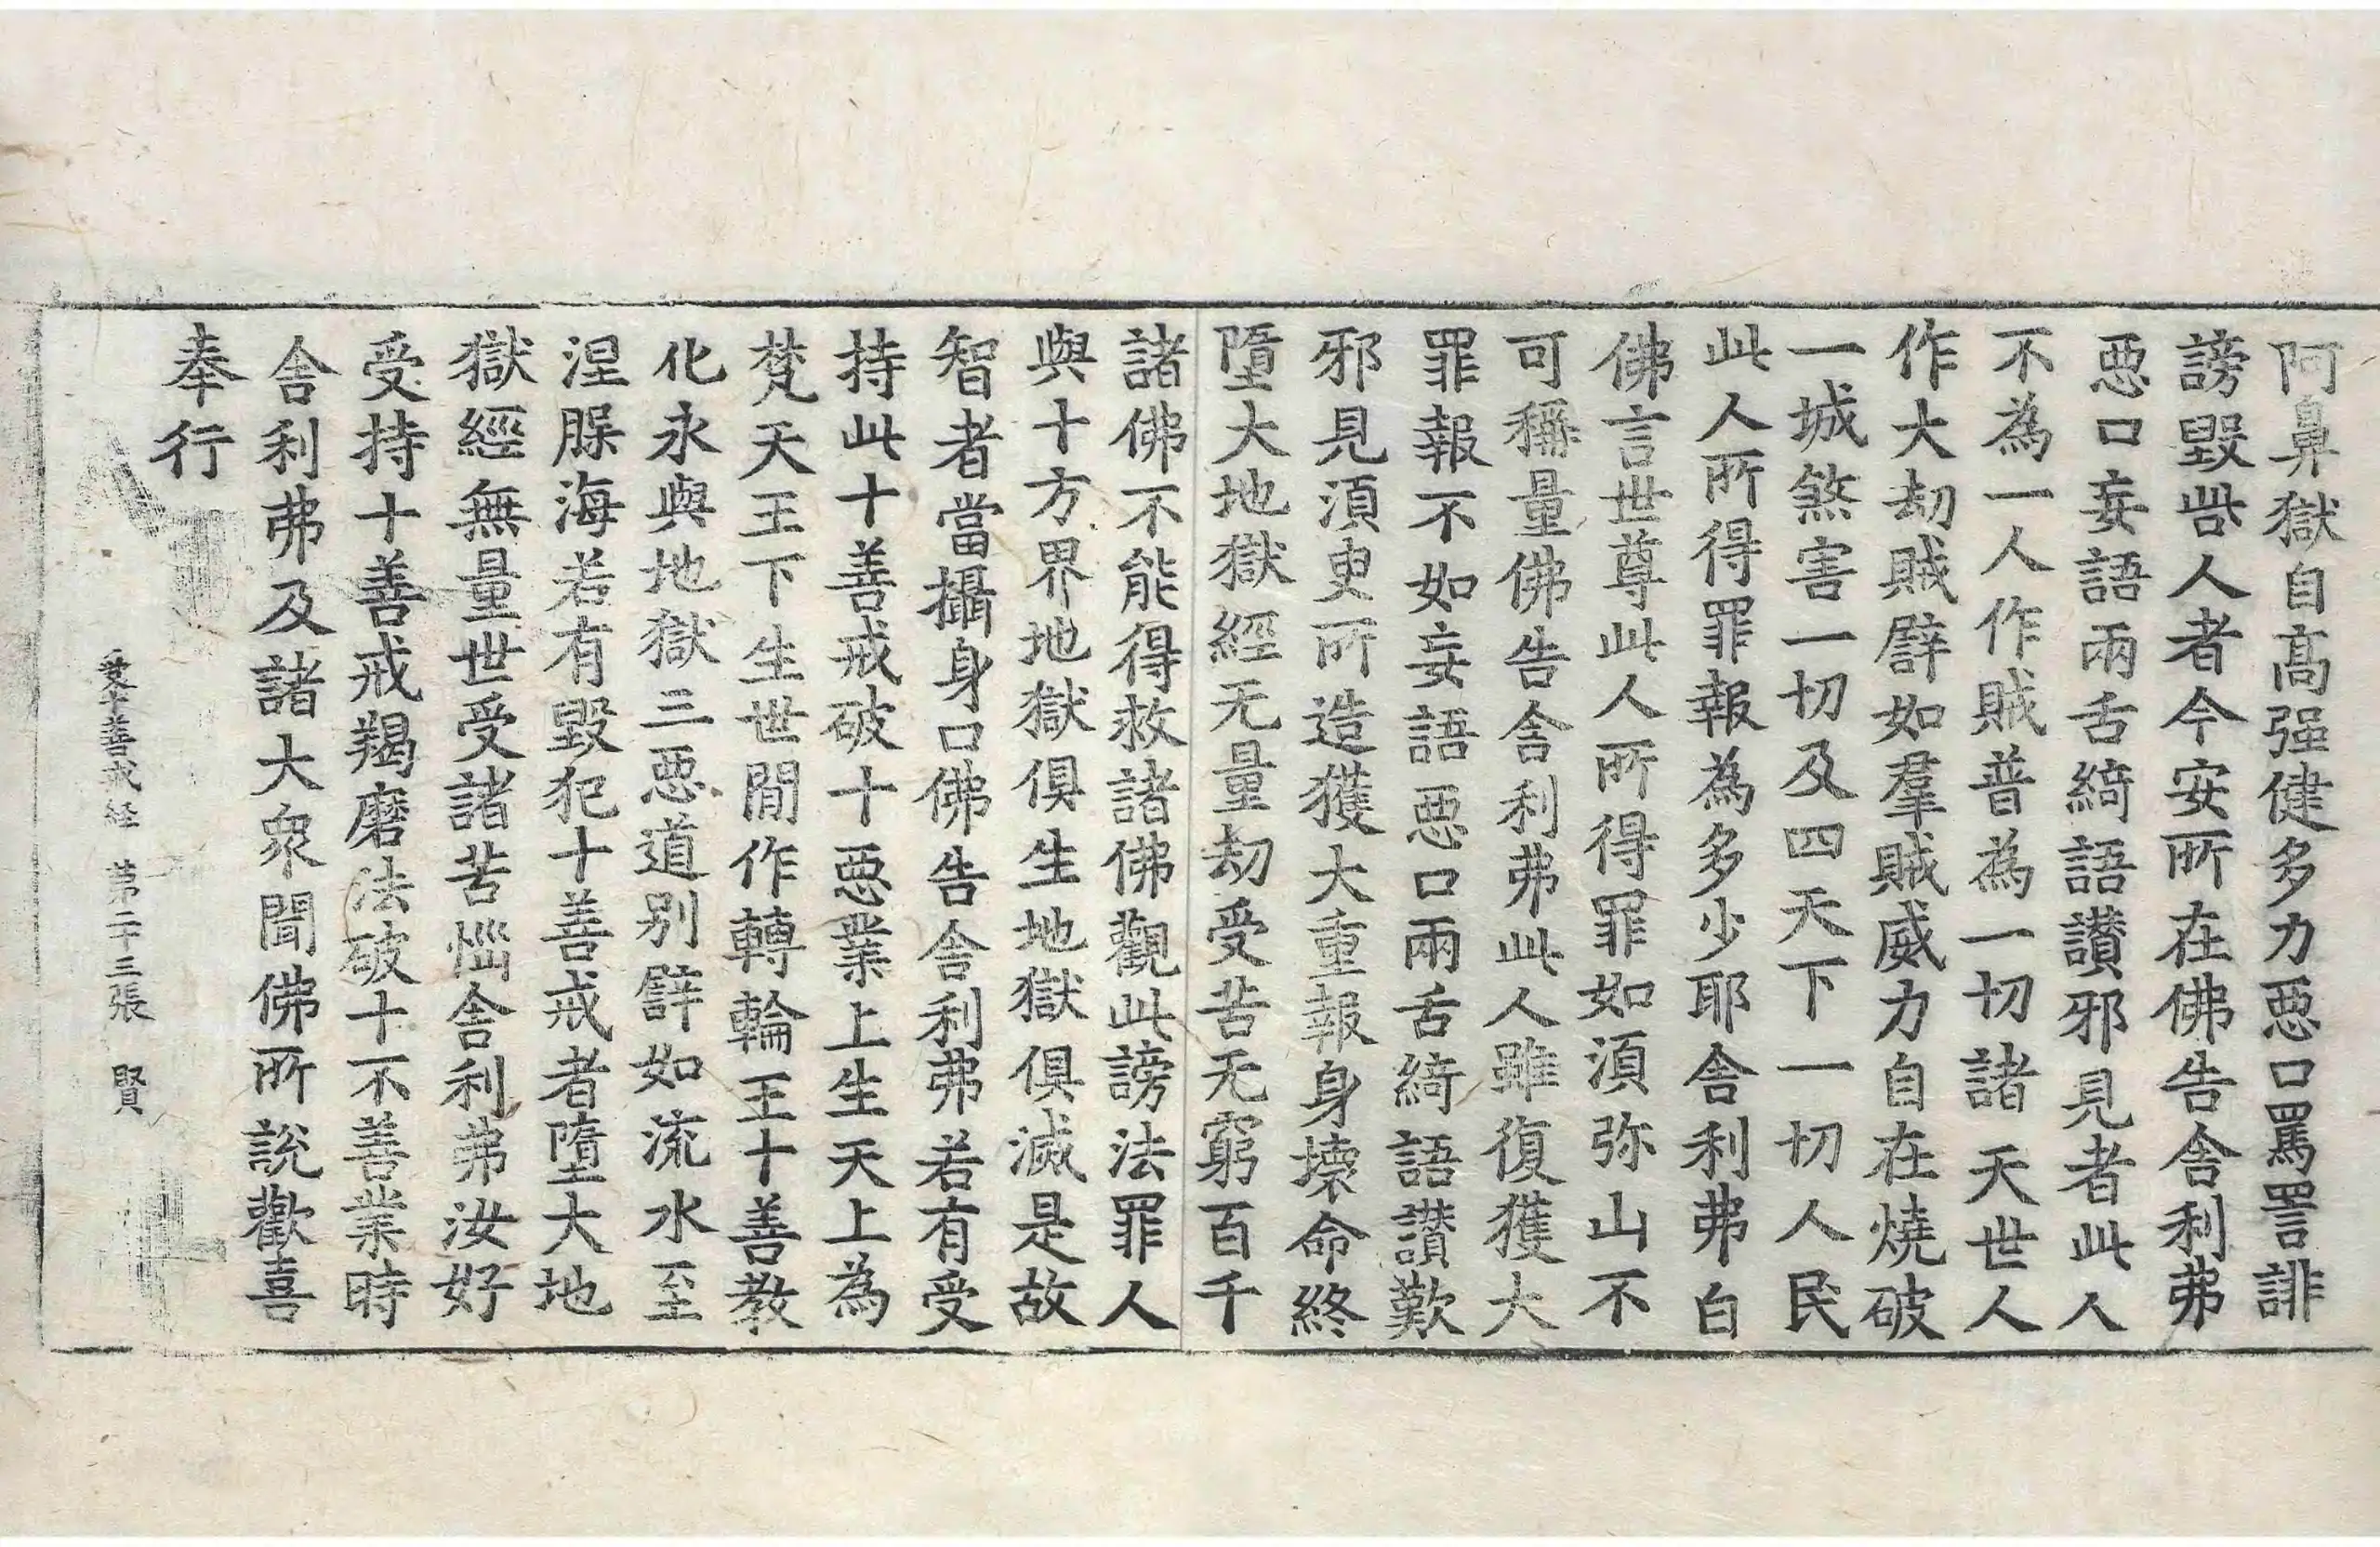 阿鼻獄自髙强健多力惡口罵詈誹
謗毀呰人者今安所在佛告舍利弗
惡口妄語兩舌綺語讃邪見者此人
不為一人作賊普為一切諸天世人
作大劫賊譬如羣賊威力自在燒破
一城煞害一切及四天下一切人民
此人所得罪報為多少耶舍利弗白
佛言世尊此人所得罪如湏弥山不
可稱量佛告舍利弗此人雖復獲大
罪報不如妄語惡口兩舌綺語讃歎
邪見湏臾所造獲大重報身壞命終
墮大地獄經无量劫受苦无窮百千
諸佛不能得救諸佛觀此謗法罪人
與十方界地獄俱生地獄俱滅是故
智者當攝身口佛告舍利弗若有受
持此十善戒破十惡業上生天上為
梵天王下生世間作轉輪王十善教
化永與地獄三惡道别譬如流水至
涅槃海若有毀犯十善戒者墮大地
獄經無量世受諸苦惱舍利弗汝好
受持十善戒羯磨法破十不善業時
舍利弗及諸大衆聞佛所說歡喜
奉行
受十善戒経 苐二十三張 賢